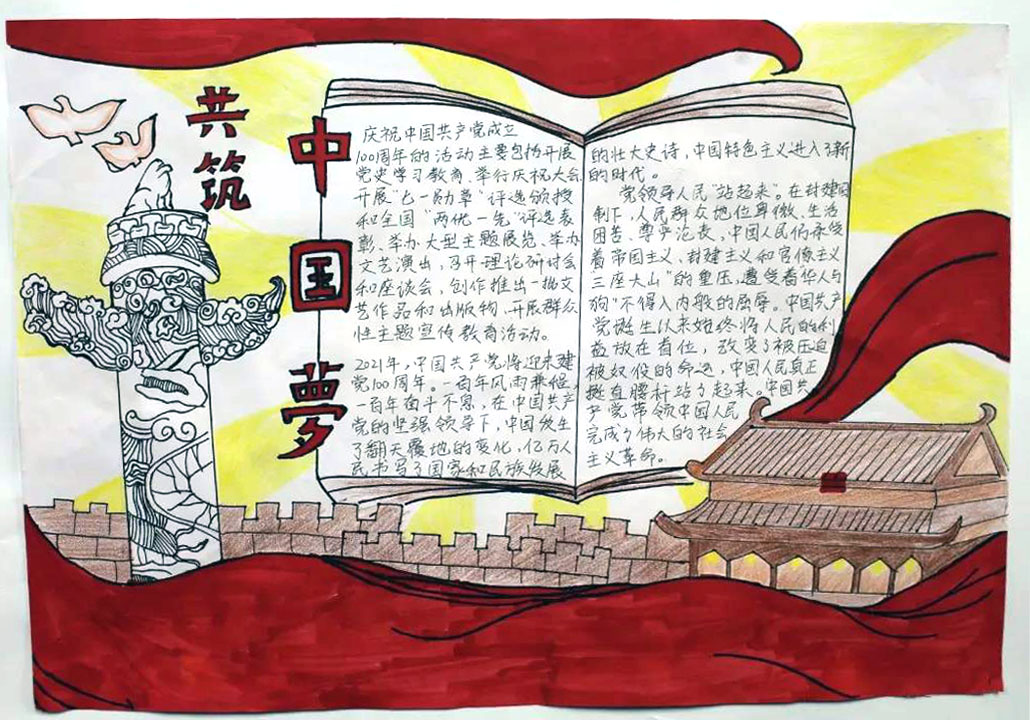 共筑
中国梦
庆祝中国共产党成立
100周年的活动主要包括开展
党史学习教育、举行庆祝大会
开展“七一勋章”评选颁授
和全国“两优一先”评选表
彰、举办大型主题展览、举办
文艺演出,召开理论研讨会
和座谈会,创作推出一批文
艺作品和出版物、开展群众
性主题宣传教育活动。
2021年,中国共产党将迎来建
党100周年。一百年风雨兼程,
一百年奋斗不息,在中国共产
党的坚强领导下,中国发生
了翻天覆地的变化,亿万人
民书写了国家和民族发展
的壮大史诗,中国特色主义进入了新
的时代。
党领导人民“站起来”。在封建
制下,人民群众地位卑微、生活
困苦、尊严沦丧,中国人民仍承绕
着帝国主义、封建主义和官像主义
三座大山”的重压,遭受着华人与
狗”不得入内般的屈辱。中国共产
党诞生以来始终将人民的利
益放在首位,改变了被压迫
被奴役的命运,中国人民真正
挺直腰杆站了起来。中国共
产党带领中国人民
完成了伟大的社会
主义革命。